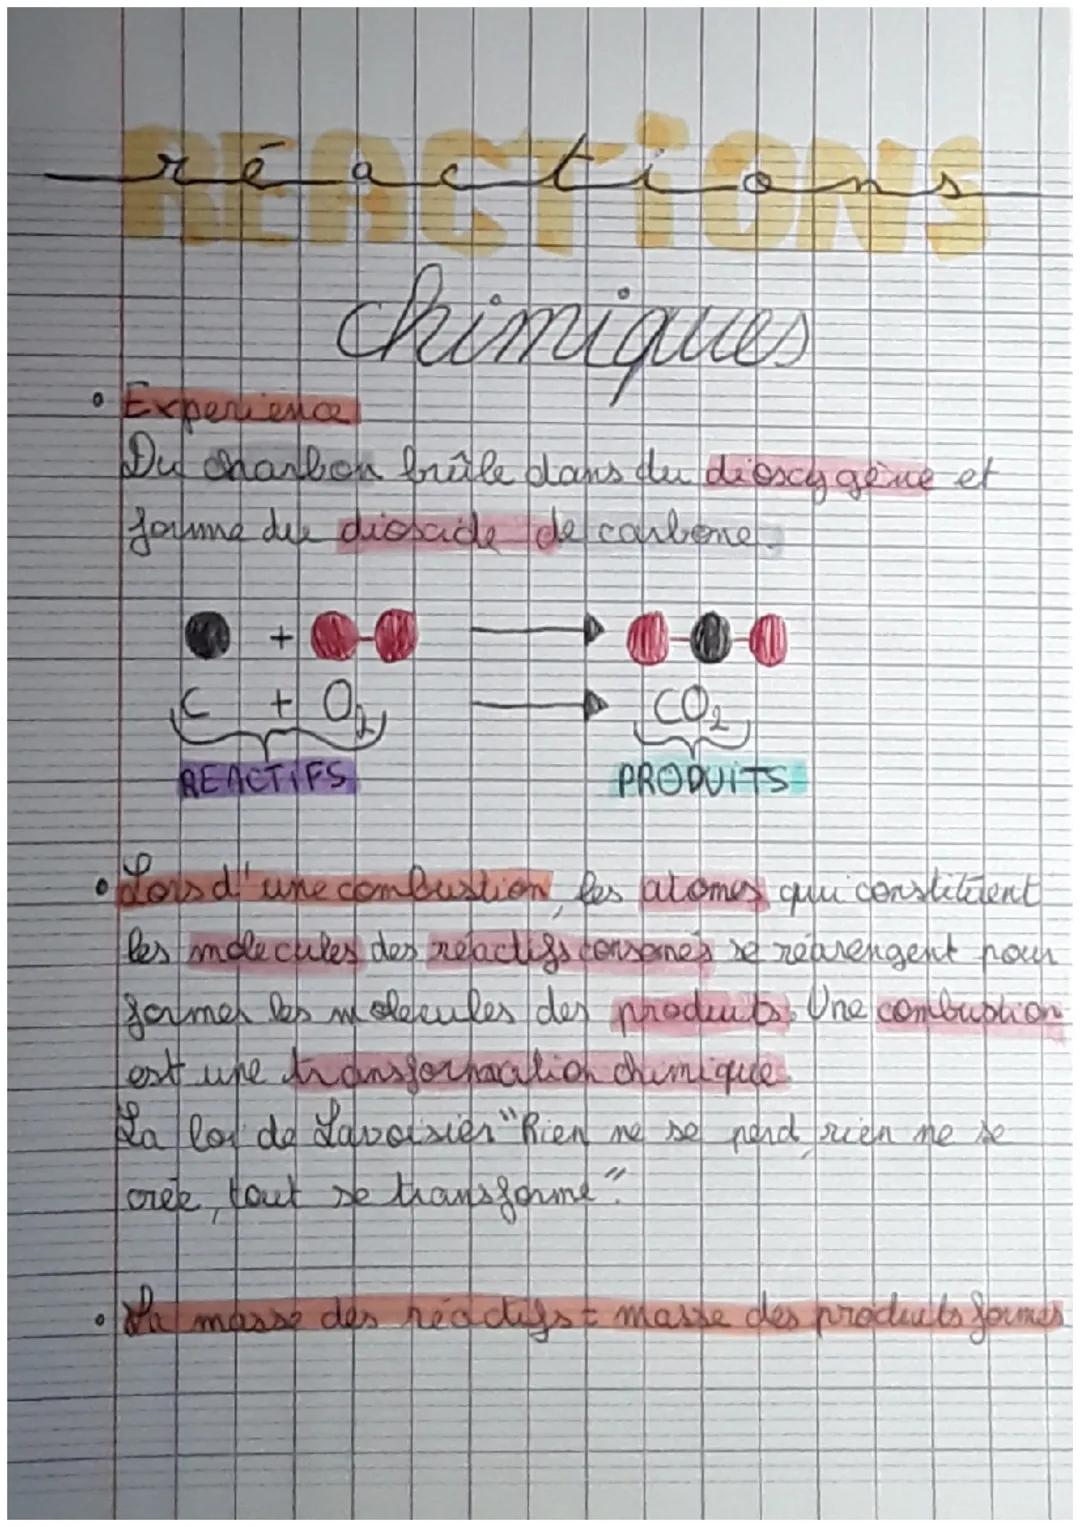 REACTIONS
réactions
chimiques
Experience
Du charbon brûle dans du dioxygène et
forme du dioxide de carbone.
+
C + O2 CO2
REACTIFS PRODUITS
Lors d'une combustion, les atomes qui constituent
les molecules des réactifs consomés se réarengent pour
former les molecules des produits. Une combustion
est une transformation chimique.
La loi de Lavoisier "Rien ne se perd, rien ne se
crée, tout se transforme".
La masse des réactifs = masse des produits formés